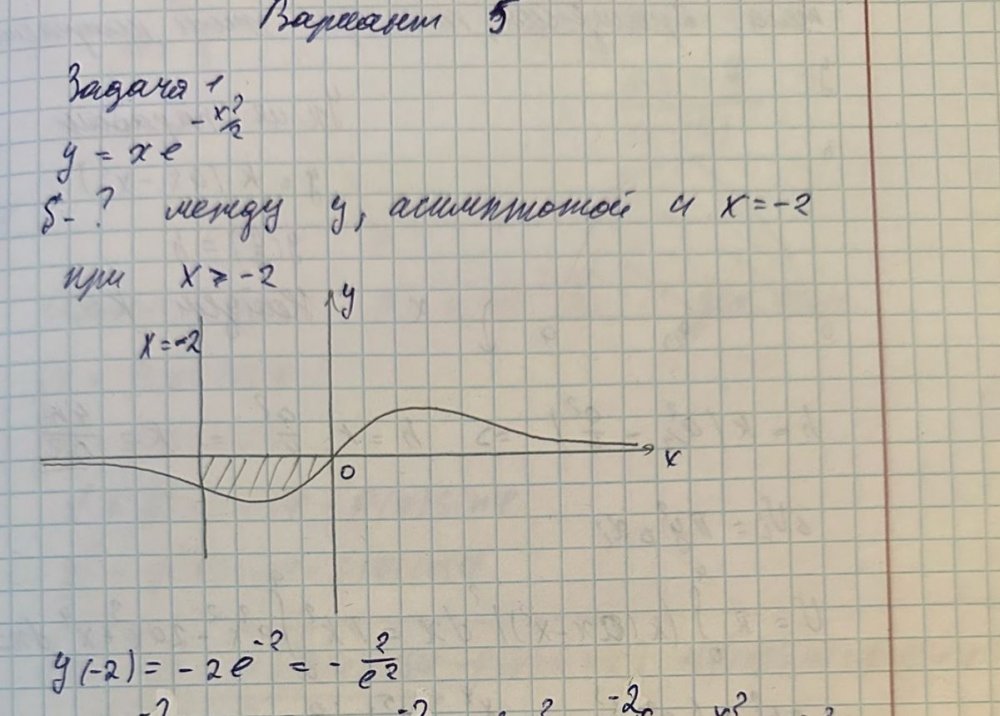 Вариант 5
Задача 1
y = x e^{-x²/2}
S - ? между y, асимптотой и x = -2
при x ≥ -2
y
x = -2
0
x
y(-2) = -2e^{-2} = - 2/e²